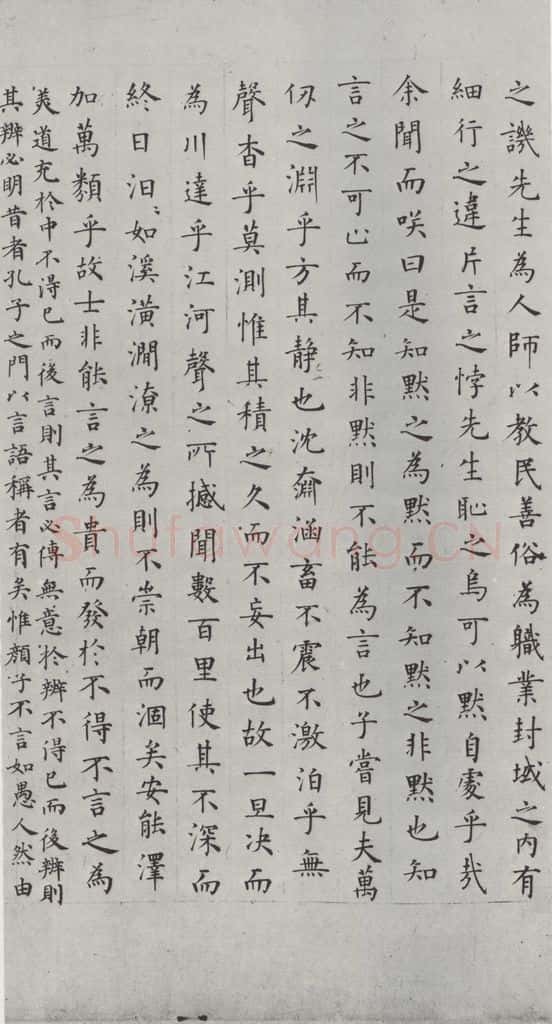 之譏先生為人師以教民善俗為職業封域之内有
細行之違片言之悖先生恥之烏可以默自處乎哉
余聞而咲曰是知默之為默而不知默之非默也知
言之不可止而不知非默則不能為言也子嘗見夫萬
仞之淵乎方其静也沈奫涵畜不震不激泊乎無
聲杳乎莫測惟其積之久而不妄出也故一旦决而
為川達乎江河聲之所撼聞數百里使其不深而
終日汩〻如溪潢澗潦之為則不崇朝而涸矣安能澤
加萬類乎故士非能言之為貴而發於不得不言之為
美道充於中不得已而後言則其言必傳無意於辨不得已而後辨則
其辨必明昔者孔子之門以言語稱者有矣惟顏子不言如愚人然由
Shufawang.CN